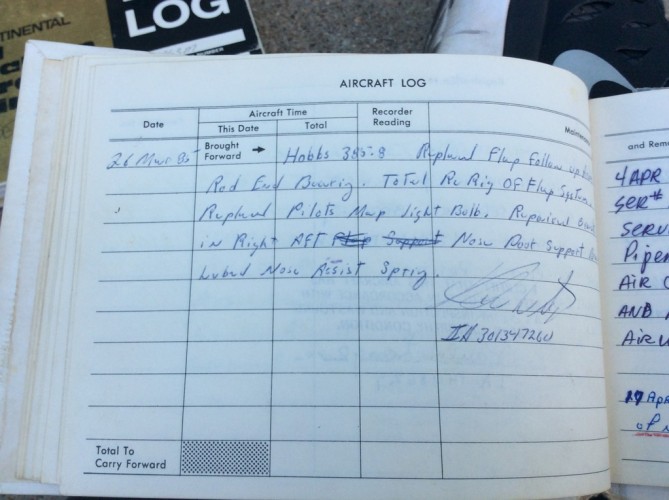 NTINENTAL
LOG
NUMBER
AIRCRAFT LOG
Date
Aircraft Time
This Date
Total
Recorder
Reading
Brought
Forward
26 Mar
Hobbs 385.8 Replaced Flap Follow up
Rod End Bearing. Total Re Rig OF Flap System.
Replaced Pilots Map Light Bolb. Repaired
in Right AFT Flap Support Nose Boot Support
Lubed Nose Assist Sprig.
IA 301347260
Total To
Carry Forward
and Rem
4 APR
SER#
SERV
Piper
AIR
AND
AIRW
17 Apr
of